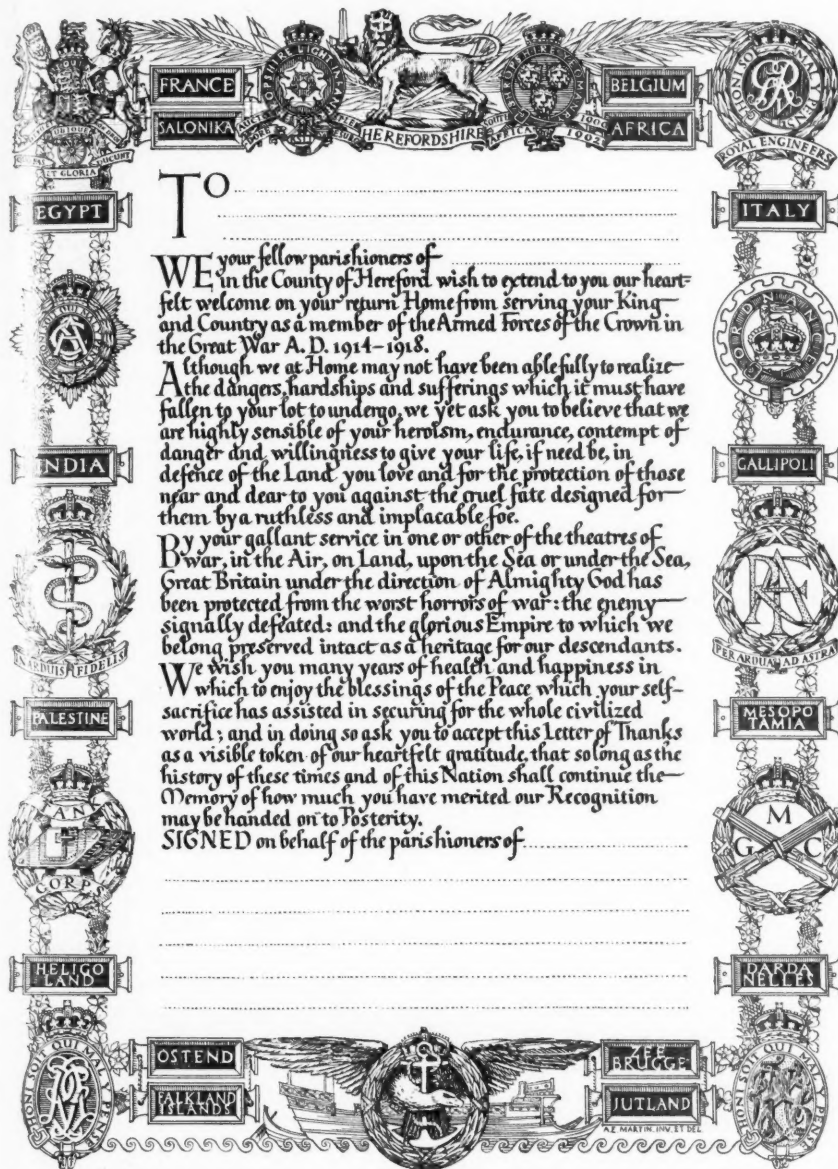 FRANCE
SALONIKA
HEREFORDSHIRE
BELGIUM
AFRICA
ROYAL ENGINEERS
EGYPT
ITALY
TO
WE your fellow parishioners of
in the County of Hereford wish to extend to you our heart-
felt welcome on your return Home from serving your King
and Country as a member of the Armed Forces of the Crown in
the Great War A. D. 1914–1918.
Although we at Home may not have been able fully to realize
the dangers, hardships and sufferings which it must have
fallen to your lot to undergo, we yet ask you to believe that we
are highly sensible of your heroism, endurance, contempt of
danger and willingness to give your life, if need be, in
defence of the Land you love and for the protection of those
near and dear to you against the cruel fate designed for
them by a ruthless and implacable foe.
By your gallant service in one or other of the theatres of
war, in the Air, on Land, upon the Sea or under the Sea,
Great Britain under the direction of Almighty God has
been protected from the worst horrors of war: the enemy
signally defeated: and the glorious Empire to which we
belong preserved intact as a heritage for our descendants.
We wish you many years of health and happiness in
which to enjoy the blessings of the Peace which your self-
sacrifice has assisted in securing for the whole civilized
world; and in doing so ask you to accept this Letter of Thanks
as a visible token of our heartfelt gratitude, that so long as the
history of these times and of this Nation shall continue the
Memory of how much you have merited our Recognition
may be handed on to Posterity.
SIGNED on behalf of the parishioners of
ORDNANCE
INDIA
GALLIPOLI
IN ARDUIS FIDELIS
PER ARDUA AD ASTRA
PALESTINE
MESOPO
TAMIA
TANK
CORPS
M
G C
HELIGO
LAND
DARDA
NELLES
HONI SOIT QUI MAL Y PENSE
OSTEND
FALKLAND
ISLANDS
ZEE
BRUGGE
JUTLAND
HONI SOIT QUI MAL Y PENSE
A.E. MARTIN. INV. ET DEL.